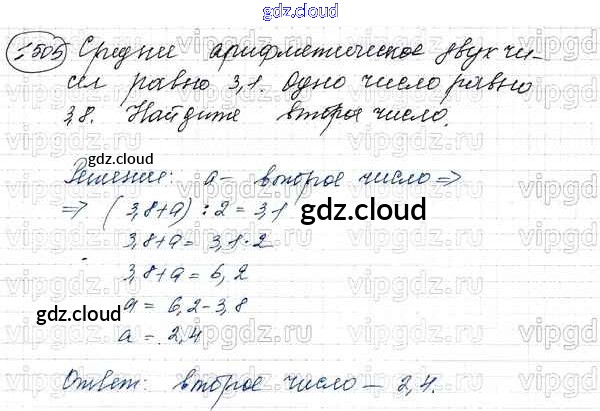 gdz.cloud
1505 Среднее арифметическое двух чи-
сел равно 3,1. Одно число равно
3,8. Найдите второе число.
gdz.cloud
Решение: a – второе число ⇒
⇒ (3,8+a) : 2 = 3,1
gdz.cloud
3,8+a = 3,1·2
3,8+a = 6,2
a = 6,2-3,8
gdz.cloud
a = 2,4
Ответ: второе число – 2,4.